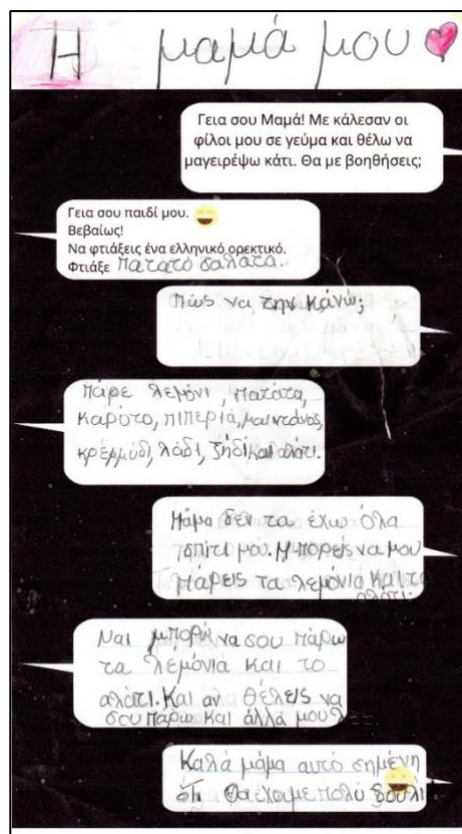 Η μαμά μου
Γεια σου Μαμά! Με κάλεσαν οι
φίλοι μου σε γεύμα και θέλω να
μαγειρέψω κάτι. Θα με βοηθήσεις;
Γεια σου παιδί μου.
Βεβαίως!
Να φτιάξεις ένα ελληνικό ορεκτικό.
Φτιάξε πατατό σαλατα.
Πώς να την κάνω;
Πάρε λεμόνι, πατάτα,
καρότο, πιπεριά, μαιντανός,
κρεμμύδι, λάδι, ξηδι και αλάτι.
Μάμα δεν τα έχω όλα
σπίτι μου. Μπορείς να μου
πάρεις τα λεμόνια και το
αλάτι.
Ναι μπορώ να σου πάρω
τα λεμόνια και το
αλάτι. Και αν θέλεις να
σου πάρω και άλλα μου
Καλά μάμα αυτό σημένη
ότι θα έχουμε πολύ